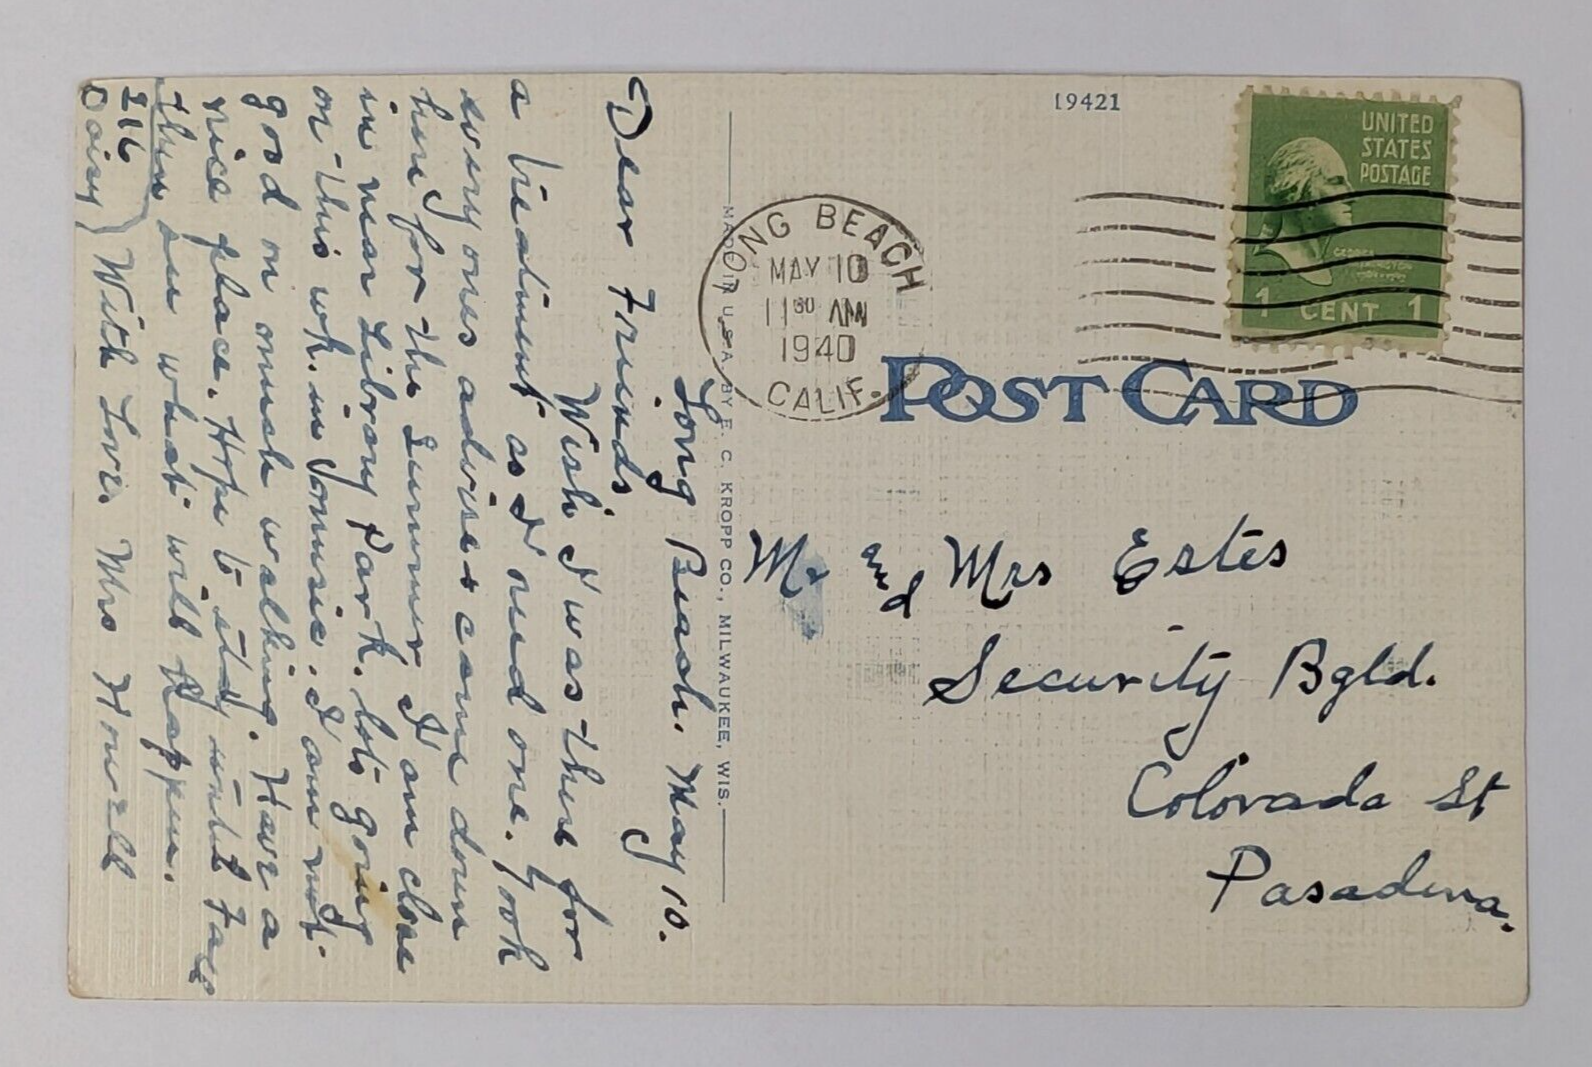 19421
UNITED
STATES
POSTAGE
GEORGE
WASHINGTON
1 CENT 1
LONG BEACH
MAY 10
11 30 AM
1940
CALIF.
POST CARD
MADE IN U.S.A. BY E. C. KROPP CO., MILWAUKEE, WIS.
Mr and Mrs Estes
Security Bgld.
Colorado St
Pasadena.
Long Beach. May 10.
Dear Friends
Wish I was there for
a treatment as I need one. Took
every ones advise & came down
here for the Summer I am close
in near Library Park. lots going
on this wk. in music. I am not
good on much walking. Have a
nice place. Hope to stay until Fall
then see what will happen.
216
Daisy) With Love. Mrs Howell